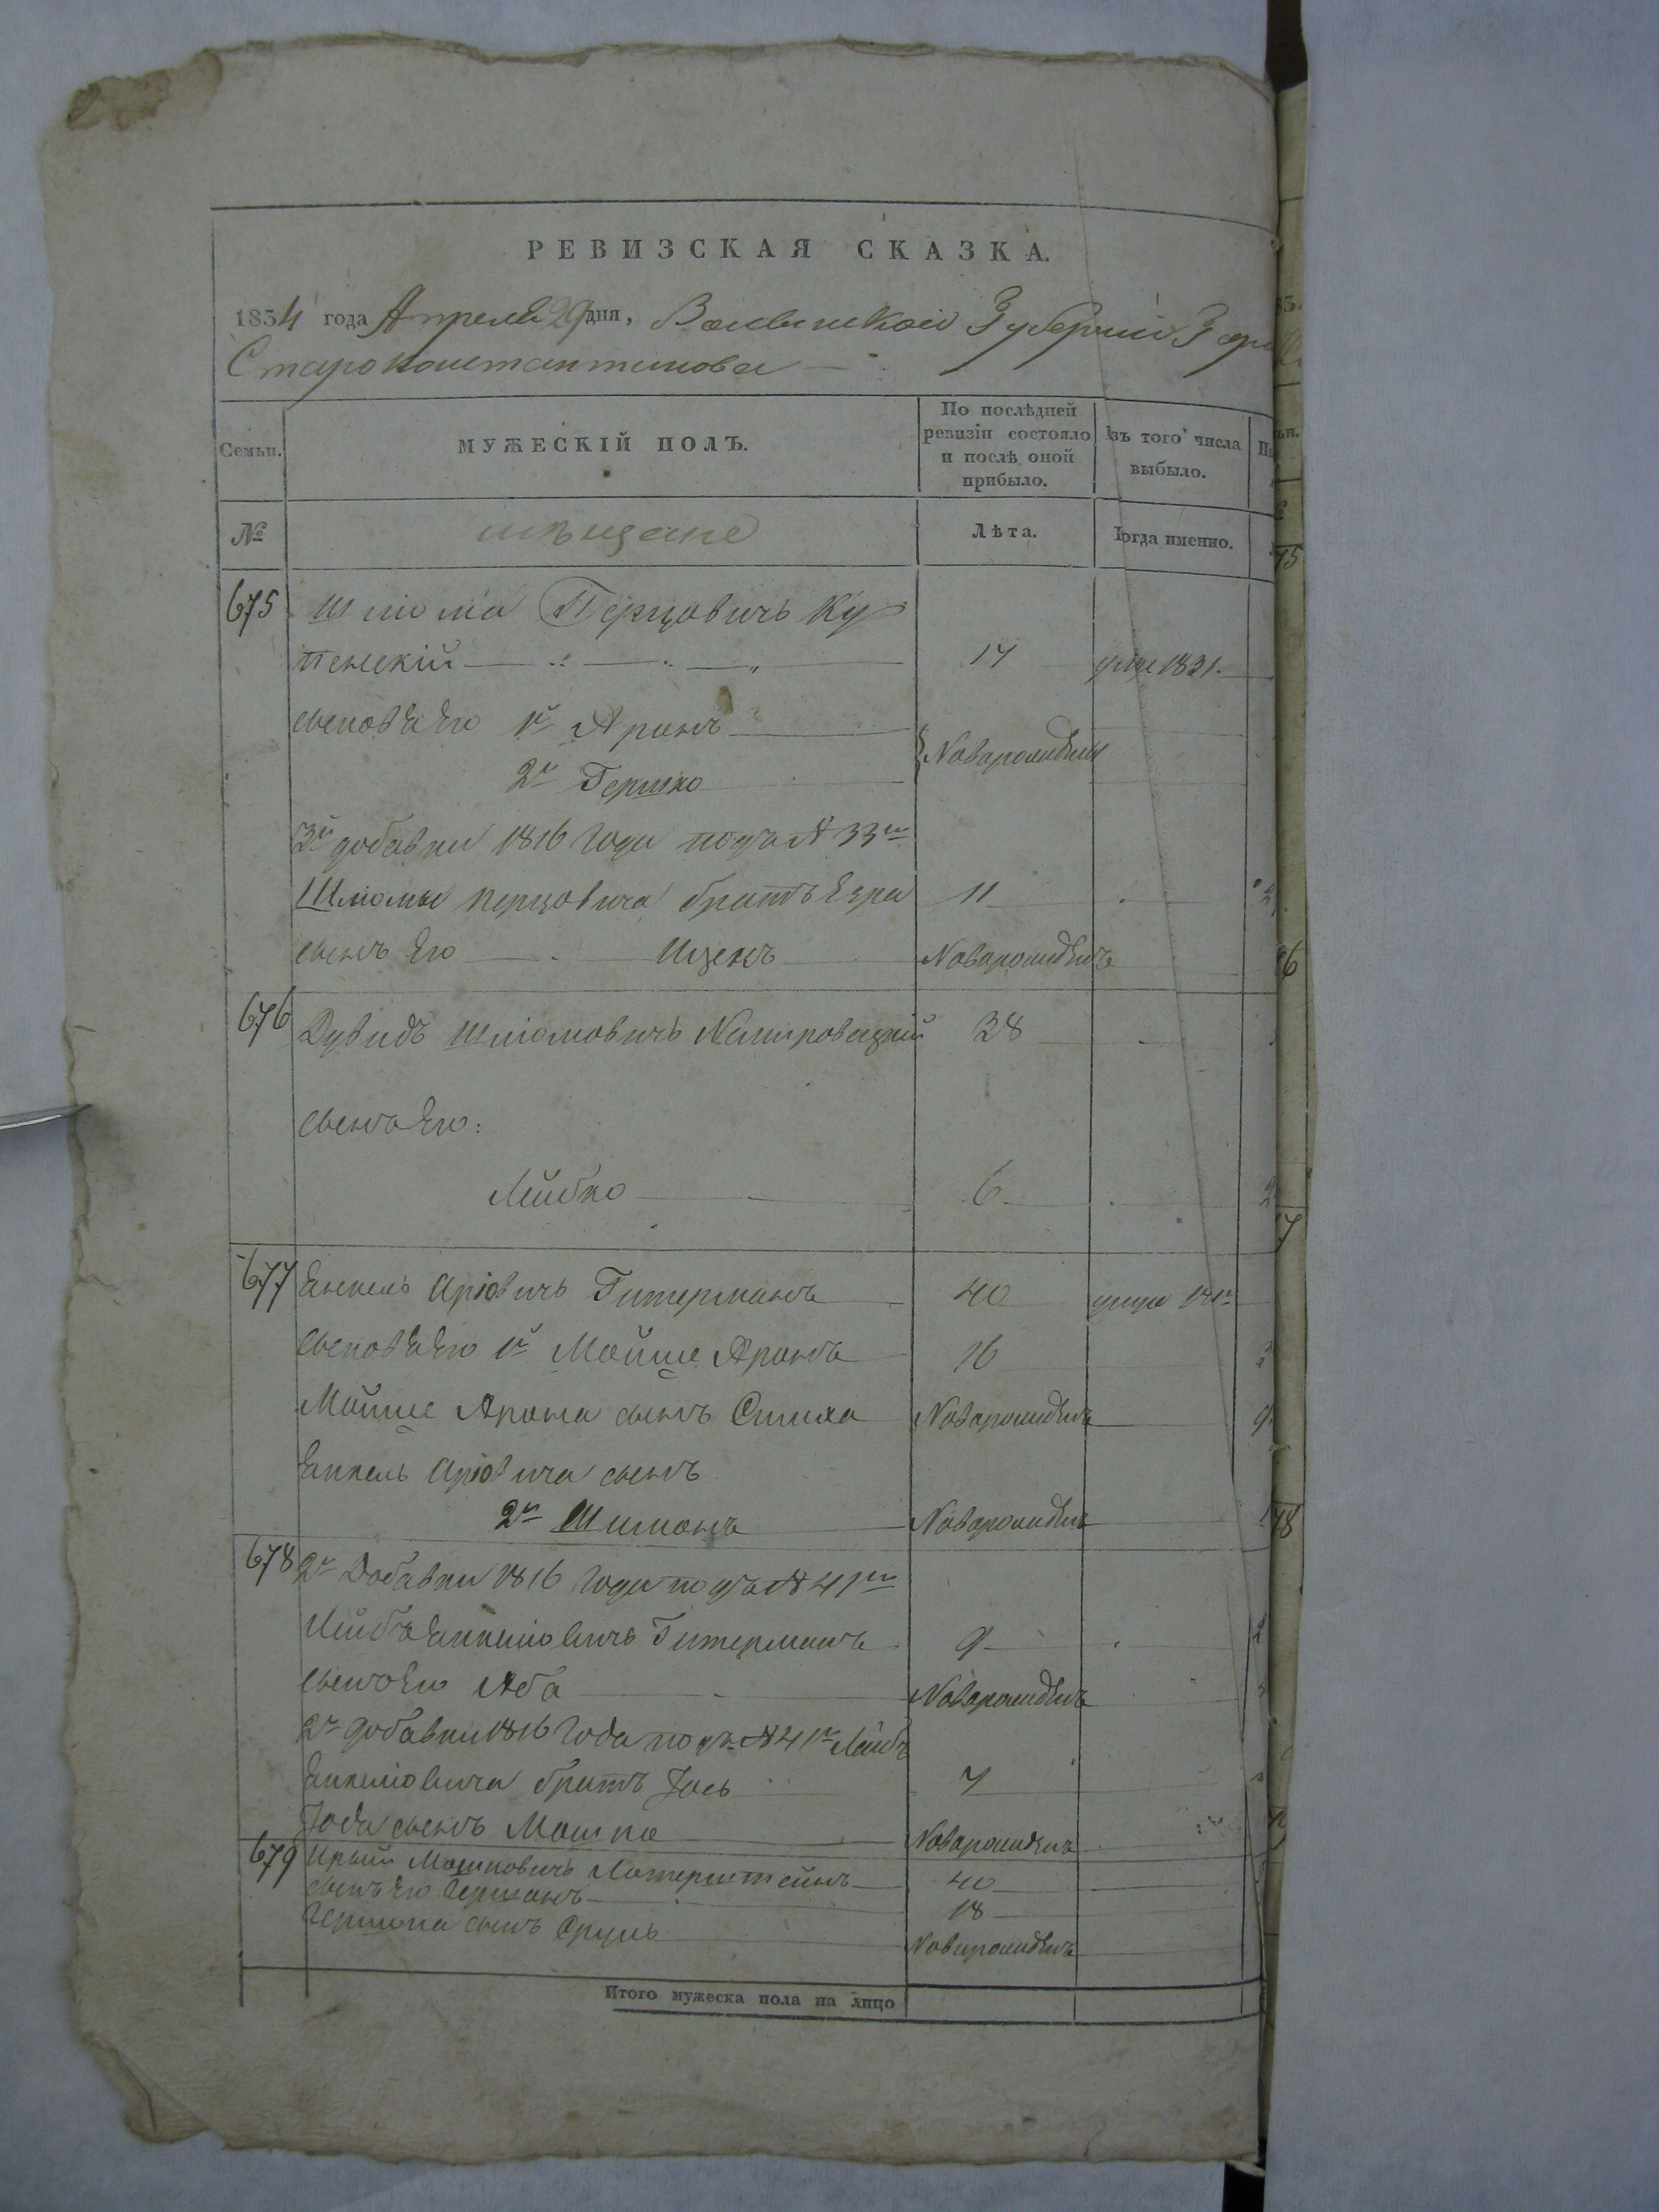 РЕВИЗСКАЯ СКАЗКА.
1834 года Апреля 29 дня, Волынской Губерніи Горо
Староконстантинова
Семьи.
МУЖЕСКІЙ ПОЛЪ.
По послѣдней ревизіи состояло и послѣ оной прибыло.
Изъ того числа выбыло.
№
мѣщане
Лѣта.
Когда именно.
675 Шліома Перцовичъ Ку
пенскій 17 умре 1831.
сыновья Его 1й Аронъ
Новорожденны
2й Гершко
3й добавки 1816 года подъ №33м
Шліомы Перцовича братъ Езра 11
сынъ Его Ицекъ Новорожденъ
676 Дувидъ Шліомовичъ Немировецкій 38
сынъ Его:
Лейбко 6
677 Янкель Аріовичъ Гитерманъ 40 умре
сыновья Его 1й Мойше Аронъ 16
Мойше Арона сынъ Симха Новорожденъ
Янкель Аріовича сынъ
2й Шимонъ Новорожденъ
678 2й Добавки 1816 года подъ №41м
Лейбъ Янкеліовичъ Гитерманъ 9
сынъ Его Аба Новорожденъ
2й добавки 1816 года подъ №41м Лейбъ
Янкеліовича братъ Іось 7
Іося сынъ Мошко Новорожденъ
679 Мошковичъ Лотерштейнъ 40
сынъ Его Гершонъ 18
Гершона сынъ Сруль Новорожденъ
Итого мужеска пола на лицо